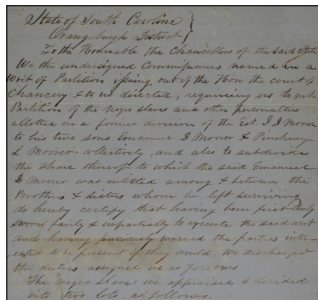 State of South Carolina }
Orangeburgh District }
To the Honorable the Chancellors of the said State
We the undersigned Commissioners named in a
writ of Partition issuing out of the Hon the court of
Chancery & to us directed, requiring us to make
Partition of the negro slaves and other personalties
allotted in a former division of the Est J J Moorer
to his two sons Emanuel I Moorer & Pinckney
L Moorer collectively, and also to subdivide
the share thereof to which the said Emanuel
I Moorer was entitled among & between the
Brothers & Sisters whom he left surviving
do hereby certify that having been first duly
sworn fairly & impartially to execute the said writ
and having previously warned the parties inter-
ested to be present if they would, We discharged
the duties assigned us as follows
The negro slaves we appraised & divided
into two lots as follows.